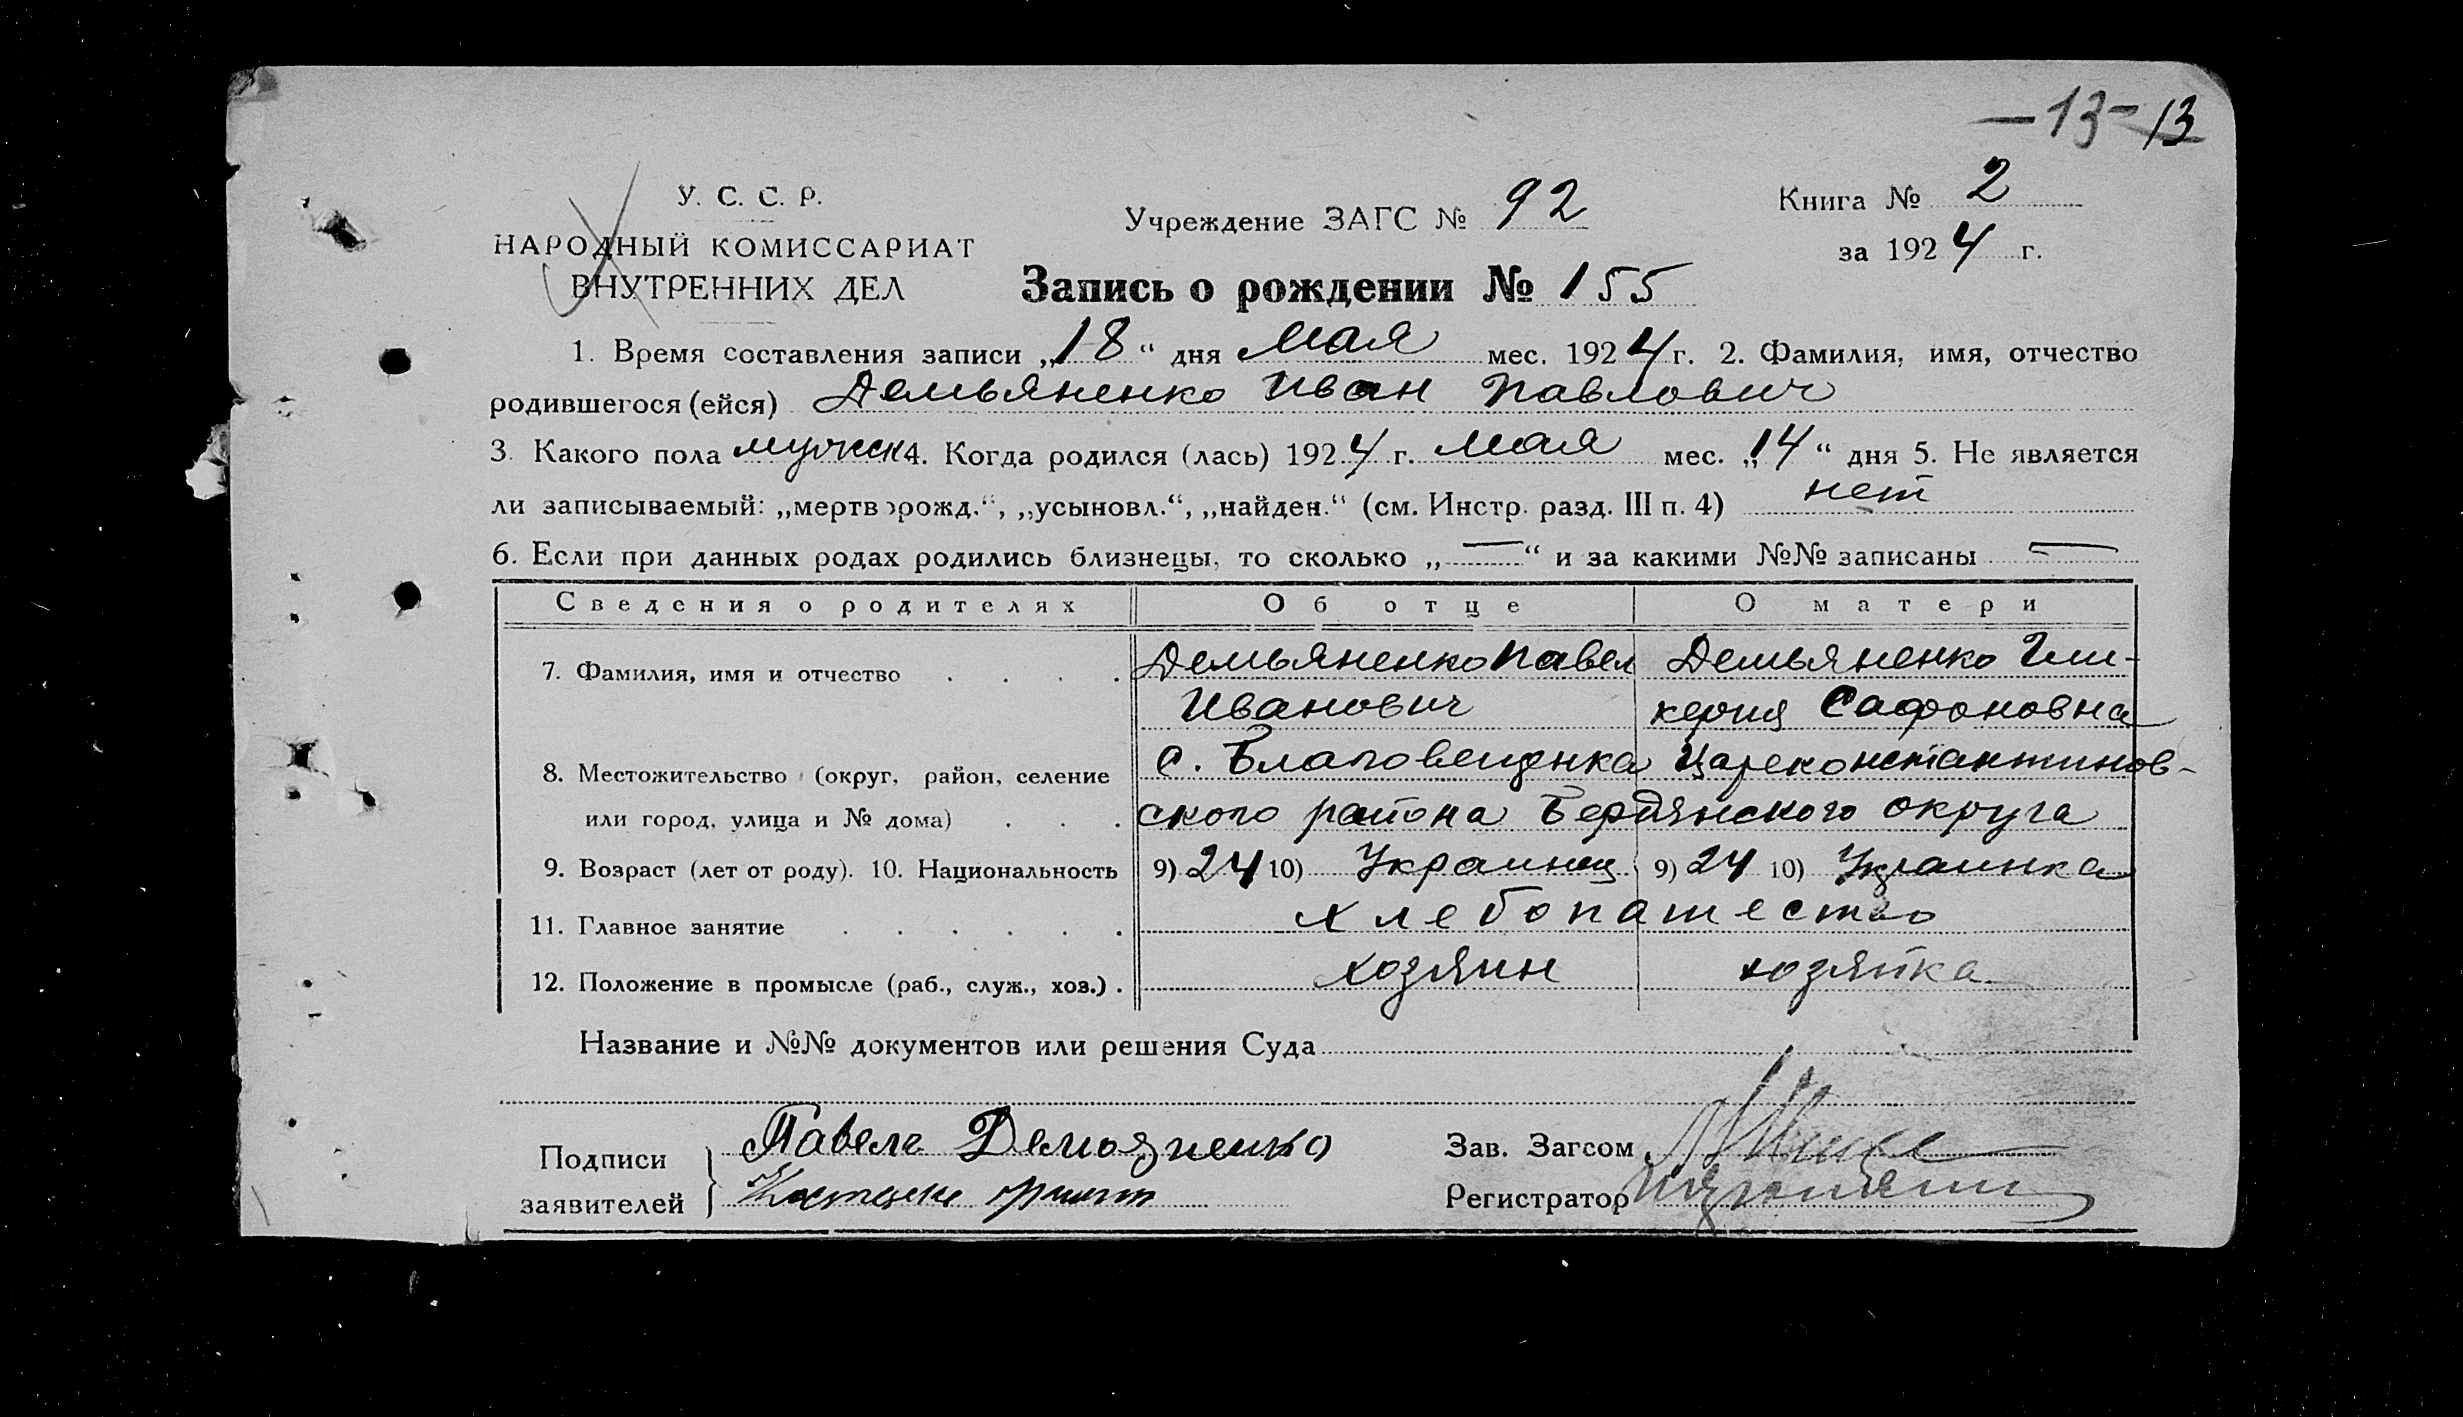 —13— 13
У. С. С. Р.
НАРОДНЫЙ КОМИССАРИАТ
ВНУТРЕННИХ ДЕЛ
Учреждение ЗАГС № 92
Книга № 2
за 1924 г.
Запись о рождении № 155
1. Время составления записи „18“ дня мая мес. 1924 г. 2. Фамилия, имя, отчество
родившегося (ейся) Демьяненко Иван Павлович
3. Какого пола мужск 4. Когда родился (лась) 1924 г. мая мес. „14“ дня 5. Не является
ли записываемый: „мертворожд.“, „усыновл.“, „найден.“ (см. Инстр. разд. III п. 4) нет
6. Если при данных родах родились близнецы, то сколько „—“ и за какими №№ записаны —
Сведения о родителях Об отце О матери
7. Фамилия, имя и отчество Демьяненко Павел Демьяненко Гли-
Иванович керия Сафоновна
8. Местожительство (округ, район, селение с. Благовещенка Цареконстантинов-
или город, улица и № дома) ского района Бердянского округа
9. Возраст (лет от роду). 10. Национальность 9) 24 10) Украинец 9) 24 10) Украинка
11. Главное занятие хлебопашество
12. Положение в промысле (раб., служ., хоз.) хозяин хозяйка
Название и №№ документов или решения Суда
Подписи Павелъ Демьяненко
заявителей
Зав. Загсом
Регистратор